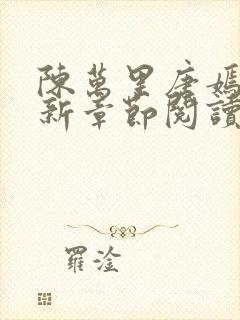 陳萬里唐嫣
新章節閱讀
羅淦